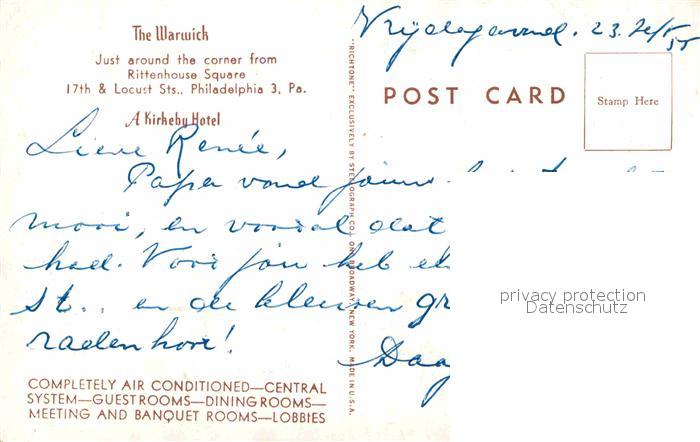 The Warwick
Just around the corner from
Rittenhouse Square
17th & Locust Sts., Philadelphia 3, Pa.
A Kirkeby Hotel
Vrijdagavond. 23.
POST CARD
Stamp Here
"RICHTONE" EXCLUSIVELY BY STEELOGRAPH CO., ONE BROADWAY, NEW YORK, MADE IN U.S.A.
Lieve Renée,
Papa vond jouw
mooi, en vooral dat
had. Voor jou heb
st.. en de kleuren gr
raden hoor!
Daa
COMPLETELY AIR CONDITIONED—CENTRAL
SYSTEM—GUESTROOMS—DINING ROOMS—
MEETING AND BANQUET ROOMS—LOBBIES
privacy protection
Datenschutz